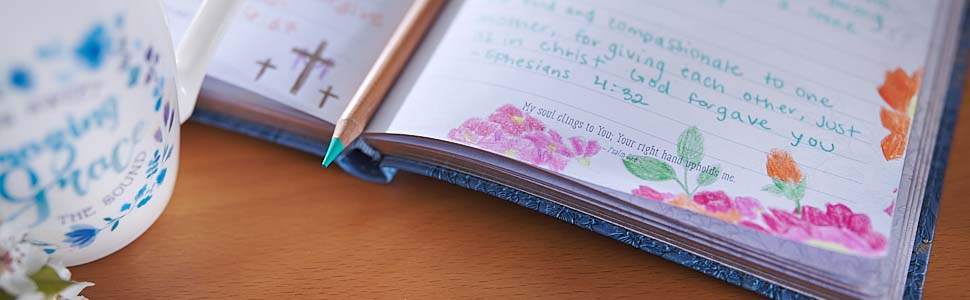 kind and compassionate to one
another, forgiving each other, just
as in christ God forgave you
- Ephesians 4:32
My soul clings to You; Your right hand upholds me.
mazing
Grace
THE SOUND